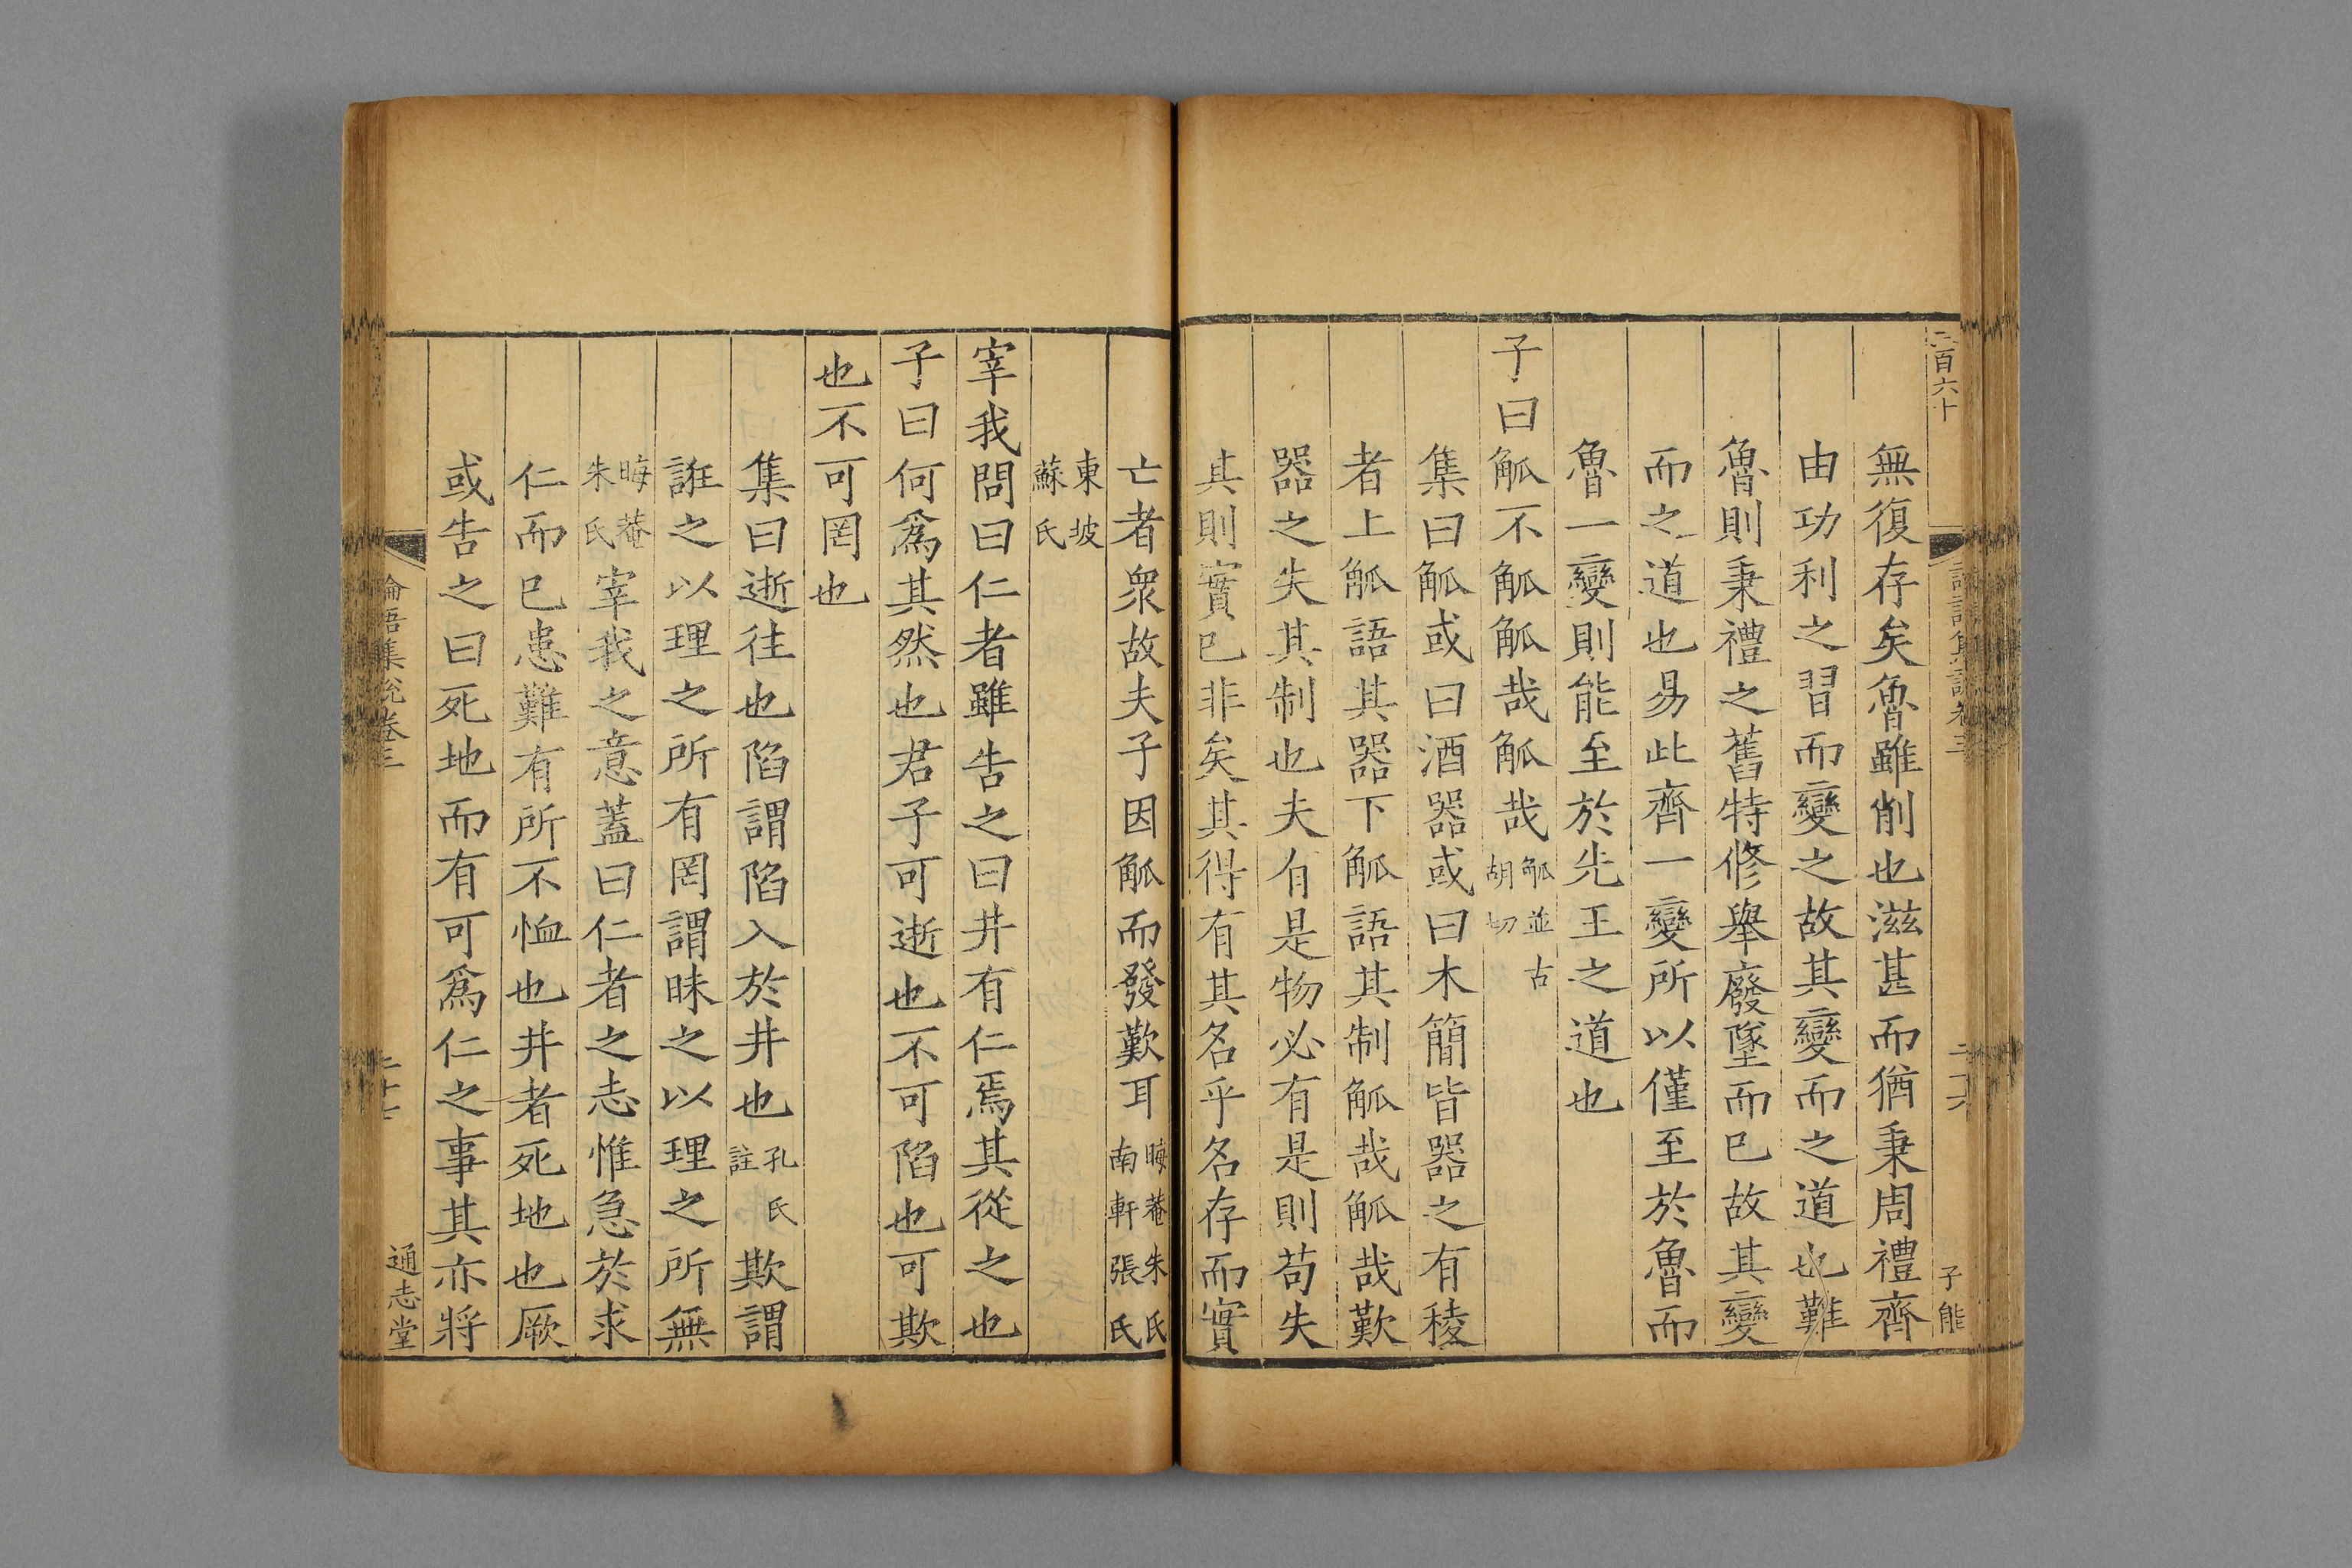 二百六十
子能
無復存矣魯雖削也滋甚而猶秉周禮齊
由功利之習而變之故其變而之道也難
魯則秉禮之舊特修舉廢墜而已故其變
而之道也易此齊一變所以僅至於魯而
魯一變則能至於先王之道也
子曰觚不觚觚哉觚哉觚並古胡切
集曰觚或曰酒器或曰木簡皆器之有稜
者上觚語其器下觚語其制觚哉觚哉歎
器之失其制也夫有是物必有是則苟失
其則實已非矣其得有其名乎名存而實
亡者衆故夫子因觚而發歎耳晦菴朱氏南軒張氏
東坡蘇氏
宰我問曰仁者雖告之曰井有仁焉其從之也
子曰何爲其然也君子可逝也不可陷也可欺
也不可罔也
集曰逝往也陷謂陷入於井也孔氏註欺謂
誑之以理之所有罔謂昧之以理之所無
晦菴朱氏宰我之意蓋曰仁者之志惟急於求
仁而已患難有所不恤也井者死地也厥
或告之曰死地而有可爲仁之事其亦將
論語集說卷三
二十七
通志堂